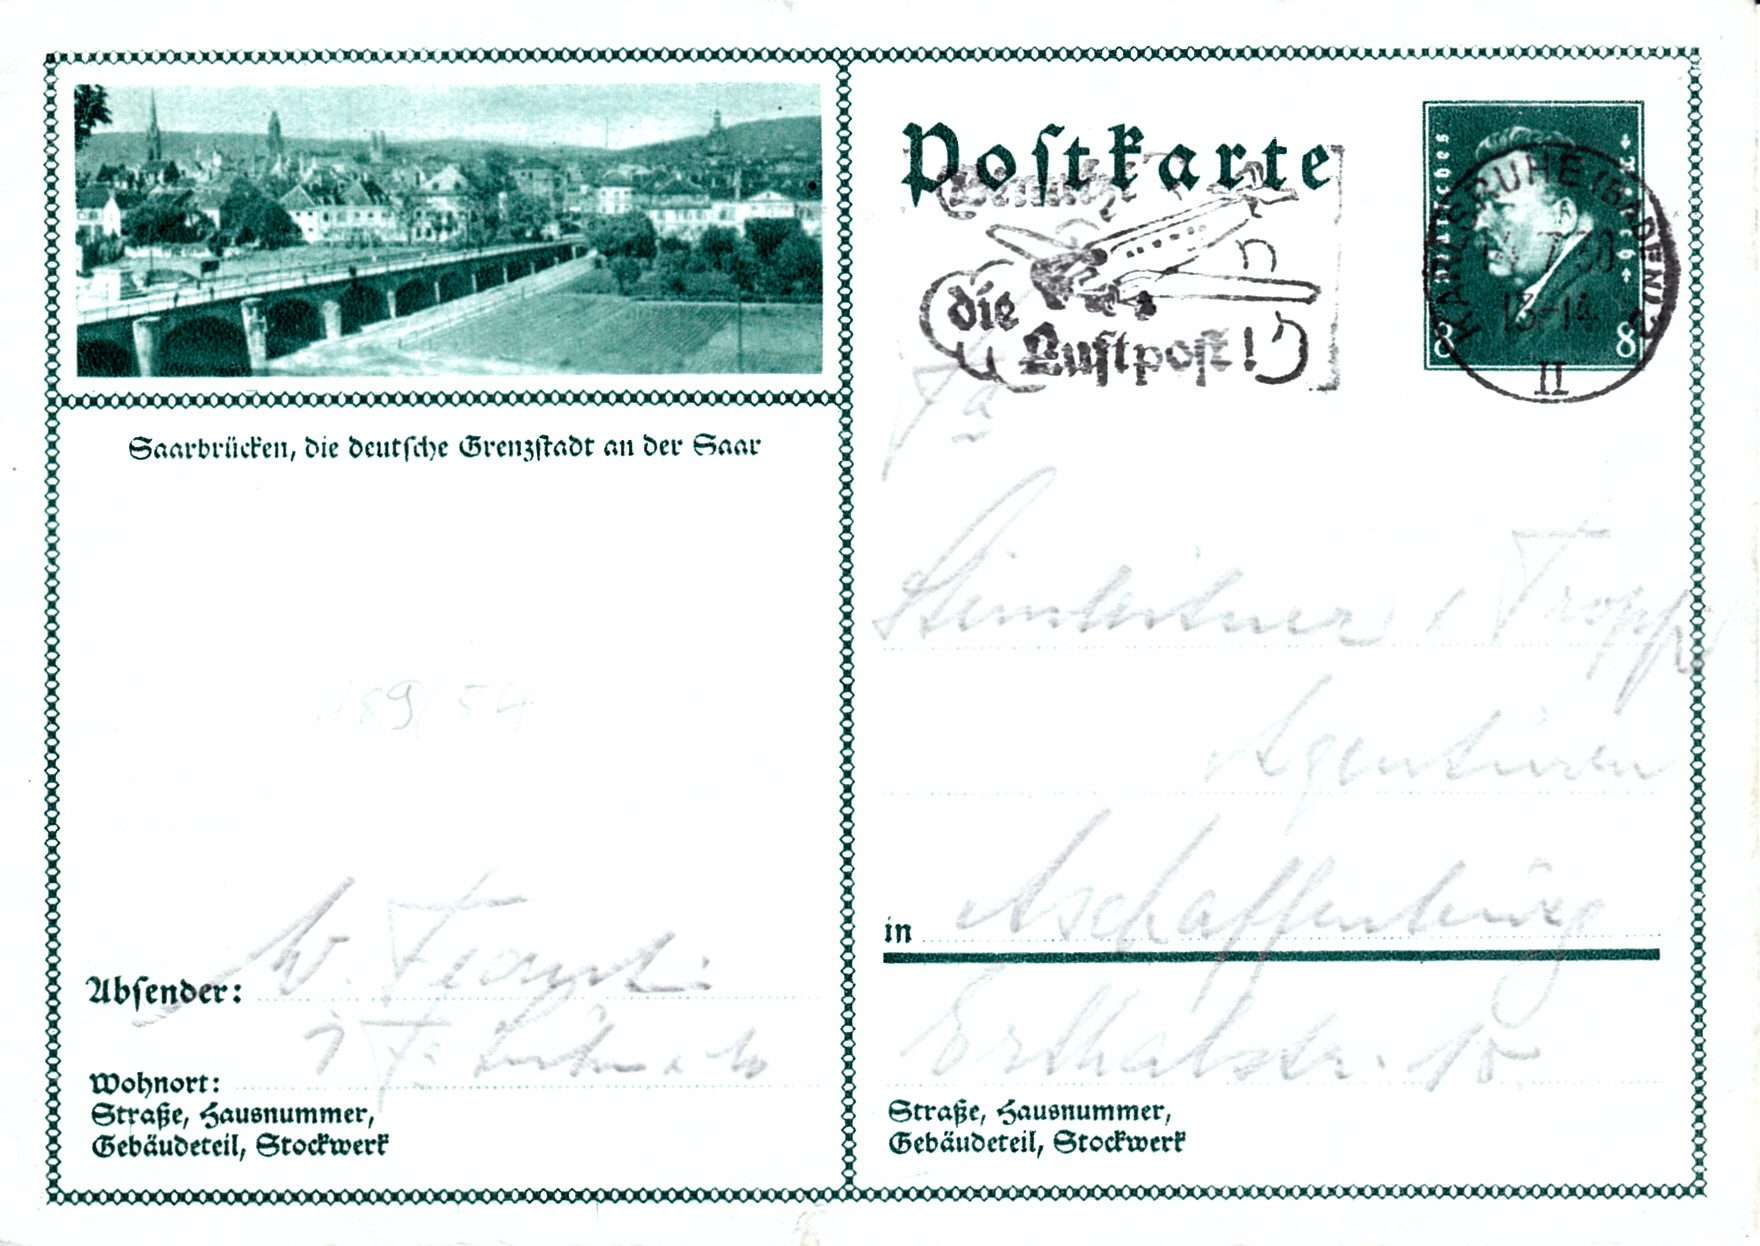 Saarbrücken, die deutsche Grenzstadt an der Saar
189/54
Absender: W.
Wohnort:
Straße, Hausnummer,
Gebäudeteil, Stockwerk
Postkarte
Benutzt
die
Luftpost!
Deutsches Reich
8 8
KARLSRUHE (BADEN) 2
7.30
13-14
II
Fa
Steinleitner & Tropp
Agenturen
in Aschaffenburg
Erthalstr. 10
Straße, Hausnummer,
Gebäudeteil, Stockwerk